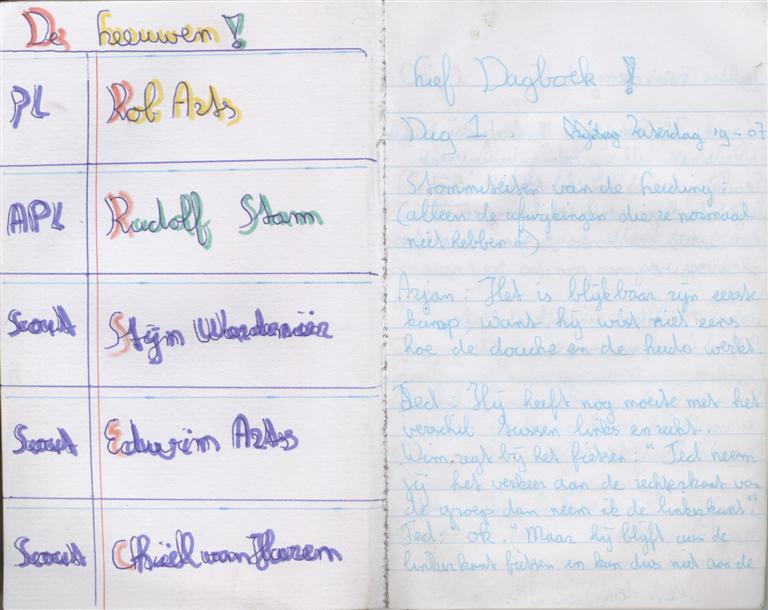 De Leeuwen!
PL Rob Arts
APL Rudolf Stam
Scout Stijn
Scout Edwin Arts
Scout van Harem
Lief Dagboek!
Dag 1. Zaterdag 19-07
Stommiteiten van de leiding:
(alleen de afwijkingen die ze normaal
niet hebben!)
Arjan: Het is blijkbaar zijn eerste
kamp, want hij wist niet eens
hoe de douche en de hudo werkt.
Ted: Hij heeft nog moeite met het
verschil tussen links en recht.
Wim zegt bij het fietsen: "Ted neem
jij het verkeer aan de rechterkant van
de groep dan neem ik de linkerkant".
Ted: "ok." Maar hij blijft aan de
linkerkant fietsen en kan dus niet aan de